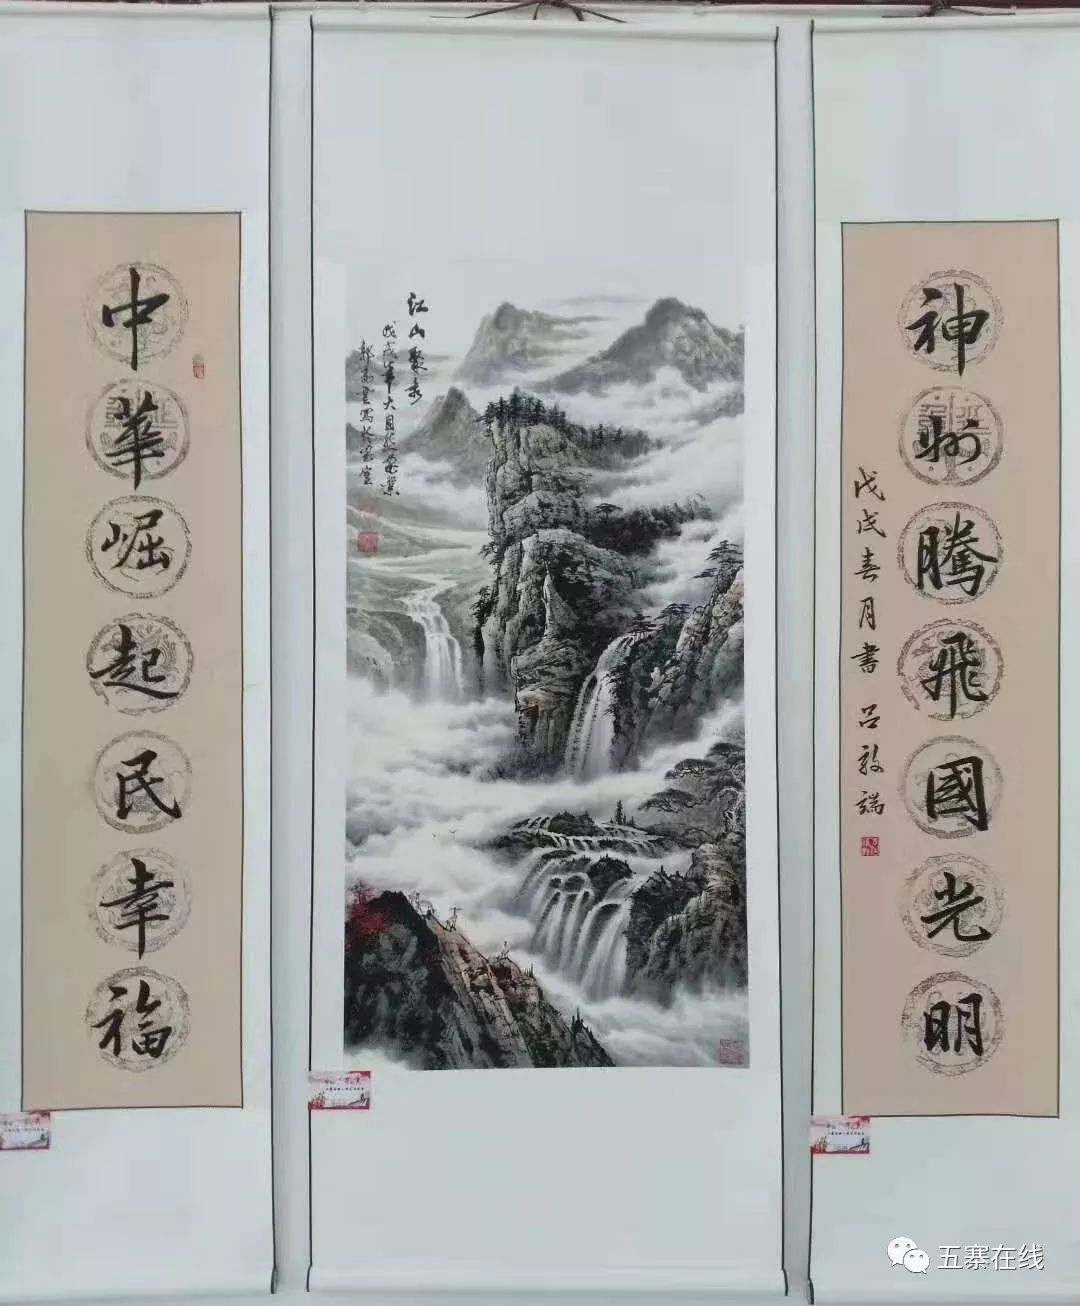 中華崛起民幸福
江山聚秀
戊戌年大月
神州騰飛國光明
戊戌春月書 呂敦端
五寨在线